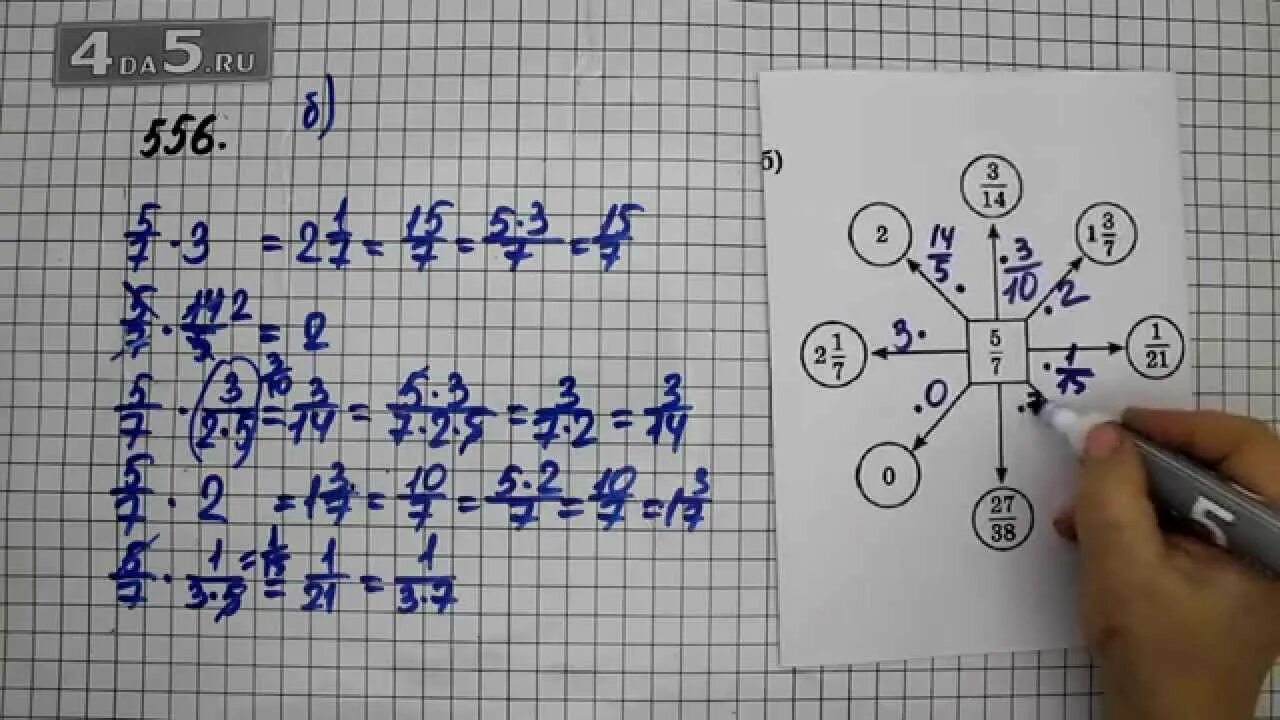 4DA5.RU
556. б)
5/7 · 3 = 2 1/7 = 15/7 = 5·3/7 = 15/7
5/7 · 14/5 2 = 2
5/7 · (3/2·5) 3/10 = 3/14 = 5·3/7·2·5 = 3/7·2 = 3/14
5/7 · 2 = 1 3/7 = 10/7 = 5·2/7 = 10/7 = 1 3/7
5/7 · 1/3·5 = 1/15 = 1/21 = 1/3·7
б)
3/14
2
1 3/7
14/5 ·
· 3/10
· 2
2 1/7
3 ·
5/7
· 1/15
1/21
· 0
0
27/38
5